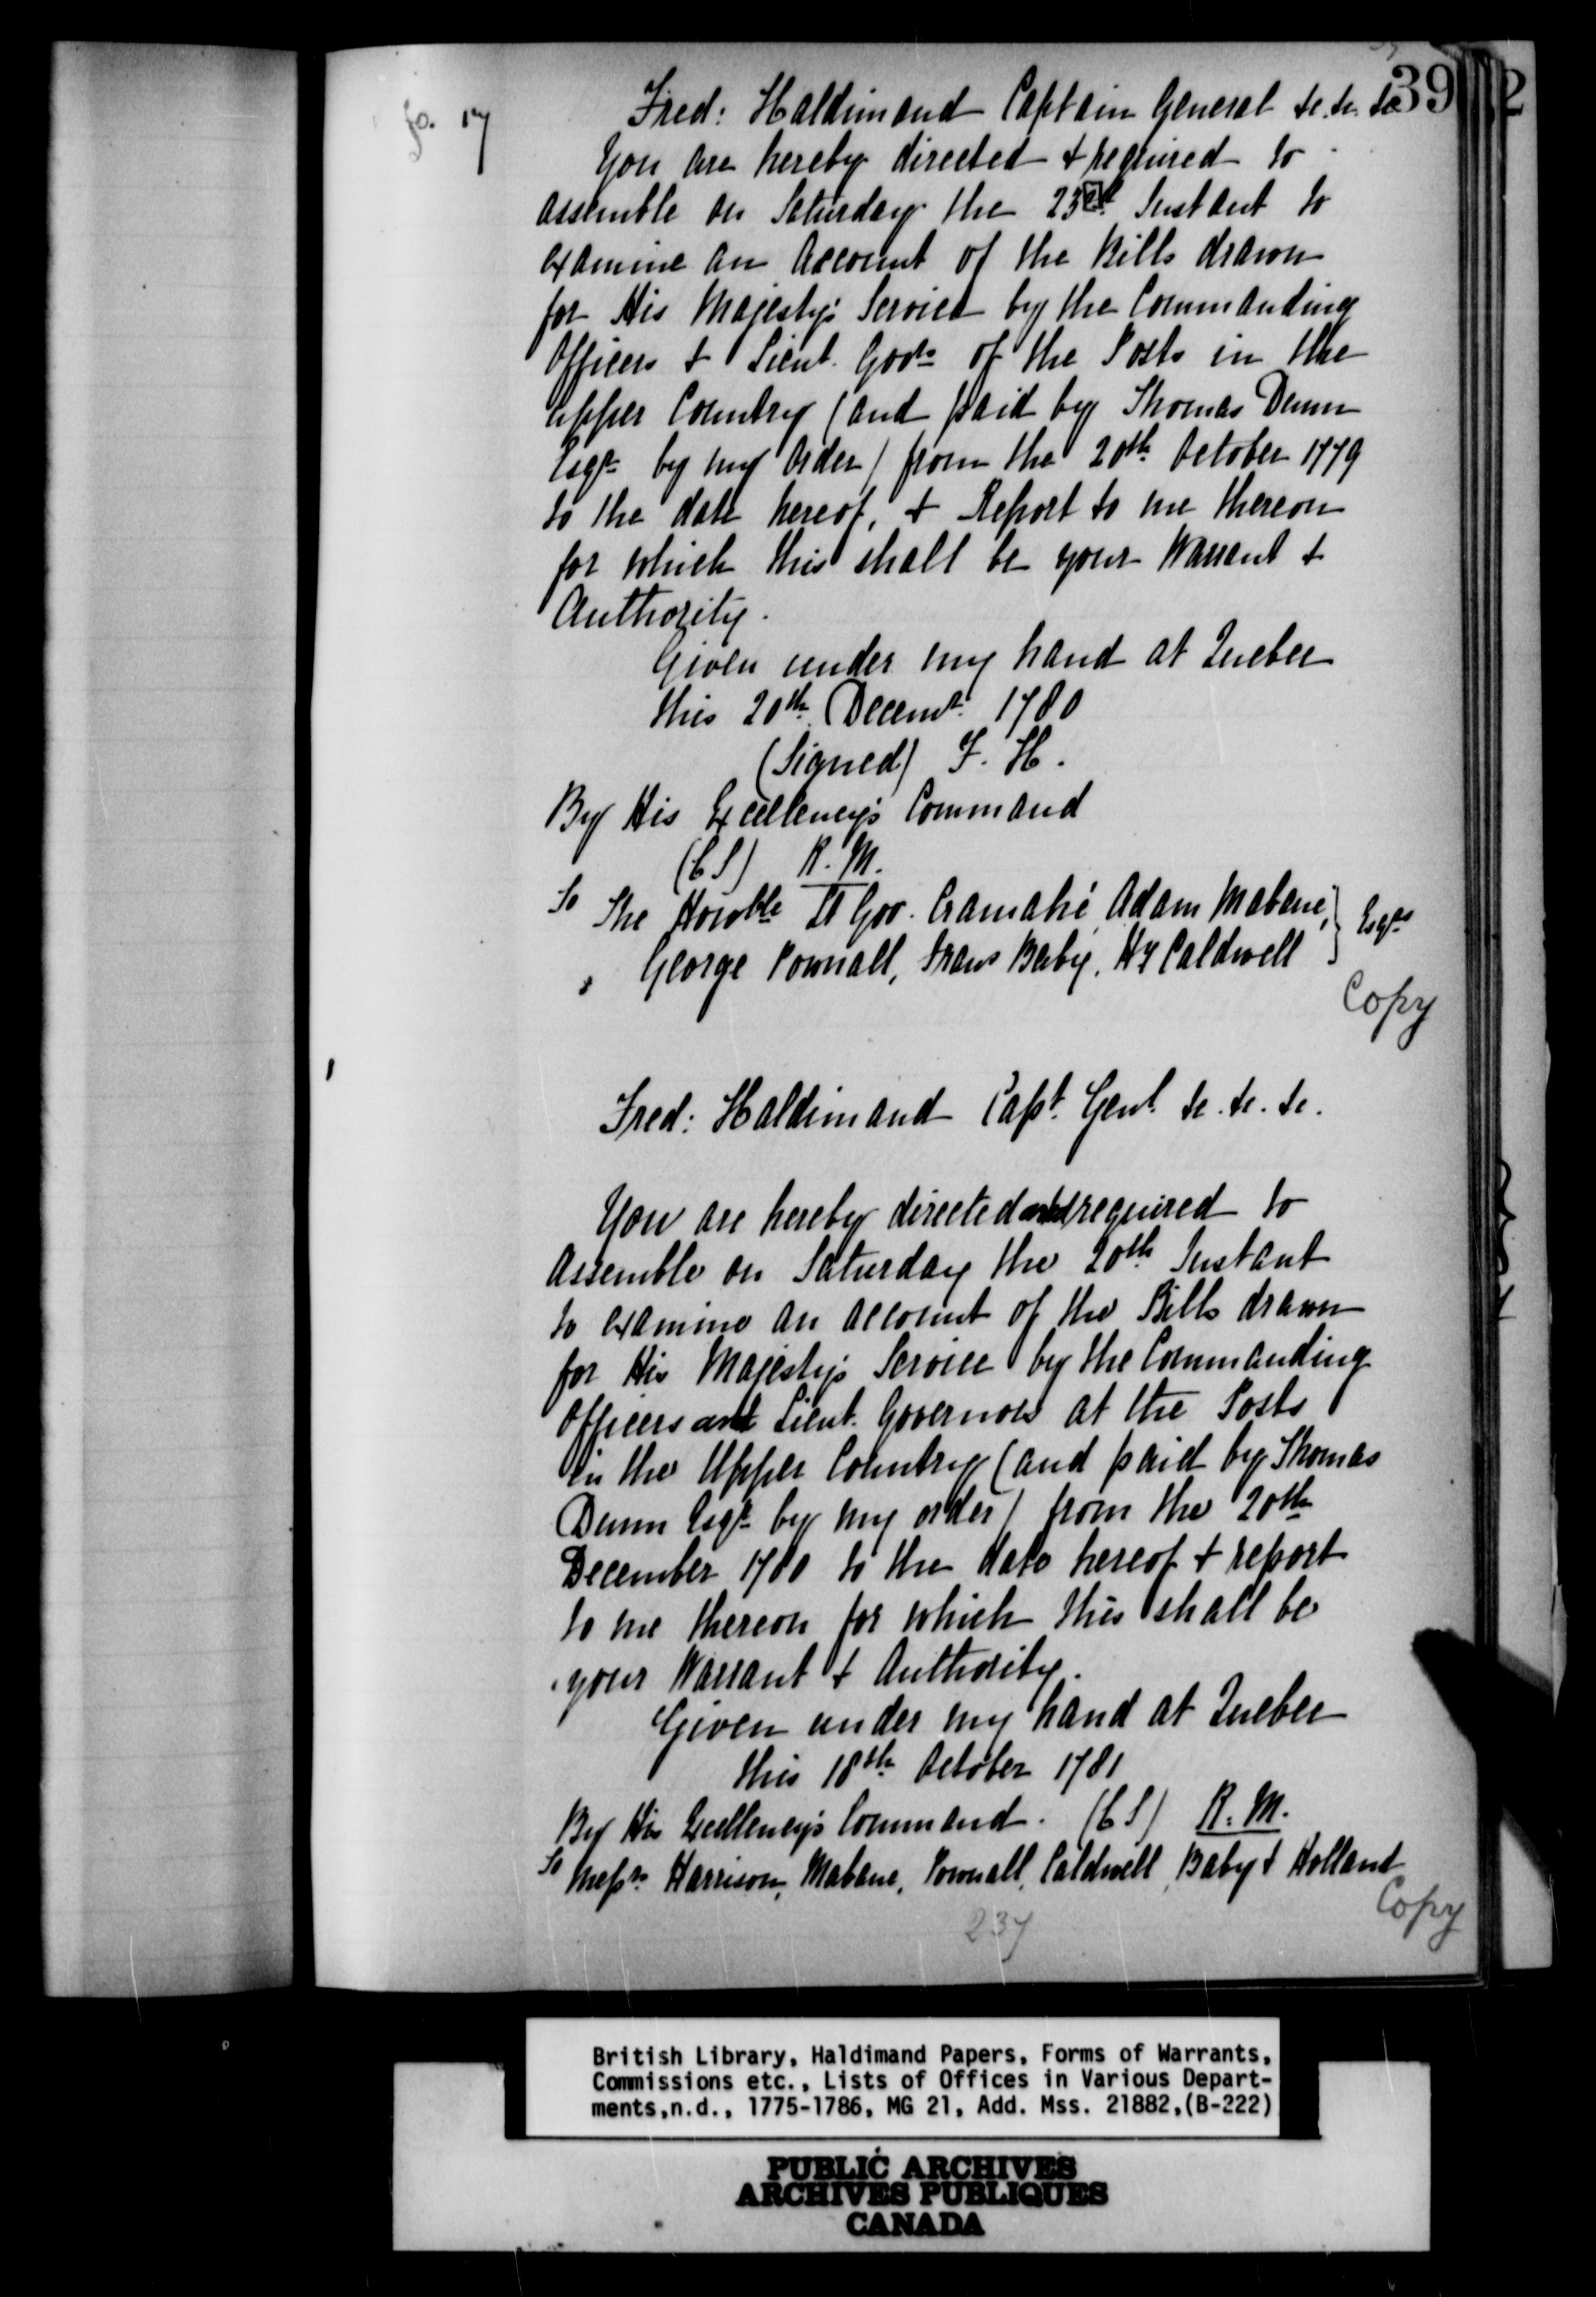 39
2
fo. 17
Fred: Haldimand Captain General &c. &c. &c
You are hereby directed & required to
assemble on Saturday the 23d. Instant to
examine an Account of the Bills drawn
for His Majesty's Service by the Commanding
Officers & Lieut. Govrs of the Posts in the
upper Country (and paid by Thomas Dunn
Esqr by my Order) from the 20th October 1779
to the date hereof, & Report to me thereon
for which this shall be your Warrant &
Authority.
Given under my hand at Quebec
this 20th Decemr. 1780
(Signed) F. H.
By His Excellency's Command
(C S) R. M.
To The Honble Lt Gov. Cramahé, Adam Mabane,
George Pownall, Frans Baby, Hy Caldwell } Esqrs
Copy
Fred: Haldimand Capt. Genl. &c. &c. &c.
You are hereby directed and required to
assemble on Saturday the 20th Instant
to examine an account of the Bills drawn
for His Majesty's Service by the Commanding
Officers and Lieut. Governors at the Posts
in the Upper Country (and paid by Thomas
Dunn Esqr by my order) from the 20th
December 1780 to the date hereof & report
to me thereon for which this shall be
your Warrant & Authority.
Given under my hand at Quebec
this 18th October 1781
By His Excellency's Command. (C S) R. M.
To Messrs Harrison, Mabane, Pownall, Caldwell, Baby & Holland
Copy
237
British Library, Haldimand Papers, Forms of Warrants,
Commissions etc., Lists of Offices in Various Depart-
ments,n.d., 1775-1786, MG 21, Add. Mss. 21882,(B-222)
PUBLIC ARCHIVES
ARCHIVES PUBLIQUES
CANADA